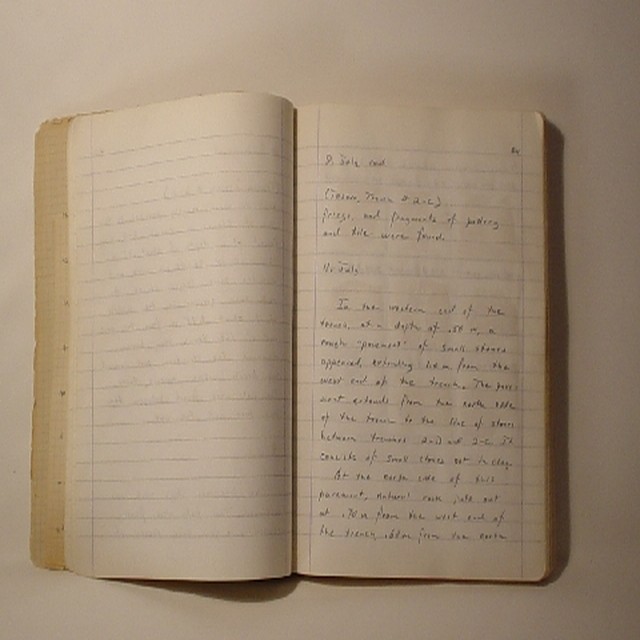 8 July cont.
Trench # 2-C)
frieze, and fragments of pottery
and tile were found.
11 July
In the western end of the
trench, at a depth of .58 m, a
rough "pavement" of small stones
appeared, extending from the
west end of the trench. The pave-
ment extends from the north side
of the trench to the line of stones
between trenches 2-D and 2-C. It
consists of small stones set in clay.
At the north side of this
pavement, natural rock juts out
at .70 m from the west end of
the trench, .60m from the north